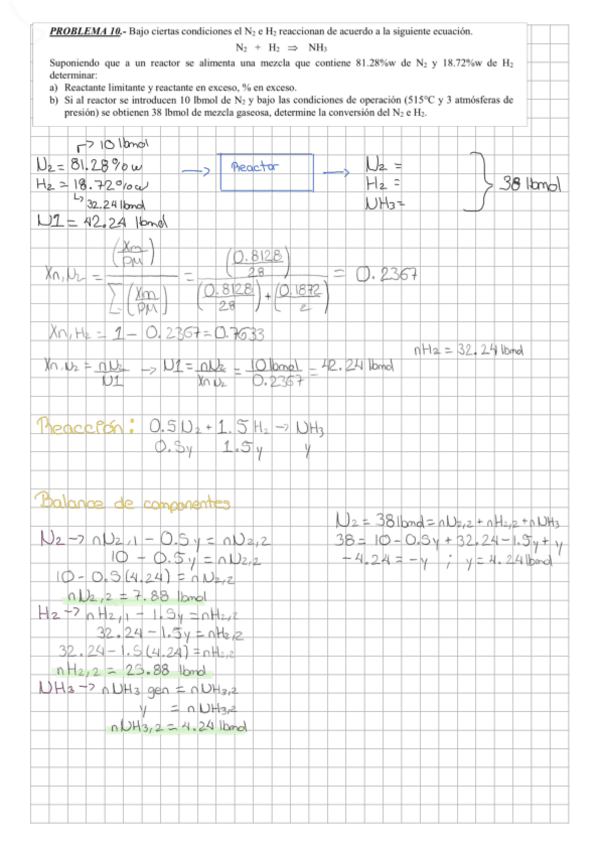 PROBLEMA 10.- Bajo ciertas condiciones el N₂ e H₂ reaccionan de acuerdo a la siguiente ecuación.
N₂ + H₂ ⇒ NH₃
Suponiendo que a un reactor se alimenta una mezcla que contiene 81.28%w de N₂ y 18.72%w de H₂
determinar:
a) Reactante limitante y reactante en exceso, % en exceso.
b) Si al reactor se introducen 10 lbmol de N₂ y bajo las condiciones de operación (515°C y 3 atmósferas de
presión) se obtienen 38 lbmol de mezcla gaseosa, determine la conversión del N₂ e H₂.
↱ 10 lbmol
N2 = 81.28%w → Reactor → N2 =
H2 = 18.72%w H2 = 38 lbmol
↳ 32.24 lbmol NH3 =
N1 = 42.24 lbmol
Xn,N2 = (Xm/PM) / Σ(Xm/PM) = (0.8128/28) / ((0.8128/28) + (0.1872/2)) = 0.2367
Xn,H2 = 1 - 0.2367 = 0.7633
nH2 = 32.24 lbmol
Xn,N2 = nN2/N1 → N1 = nN2/Xn N2 = 10 lbmol/0.2367 = 42.24 lbmol
Reacción: 0.5N2 + 1.5H2 → NH3
0.5y 1.5y y
Balance de componentes
N2 = 38 lbmol = nN2,2 + nH2,2 + nNH3
N2 → nN2,1 - 0.5y = nN2,2 38 = 10 - 0.5y + 32.24 - 1.5y + y
10 - 0.5y = nN2,2 -4.24 = -y ; y = 4.24 lbmol
10 - 0.5(4.24) = nN2,2
nN2,2 = 7.88 lbmol
H2 → nH2,1 - 1.5y = nH2,2
32.24 - 1.5y = nH2,2
32.24 - 1.5(4.24) = nH2,2
nH2,2 = 25.88 lbmol
NH3 → nNH3 gen = nNH3,2
y = nNH3,2
nNH3,2 = 4.24 lbmol